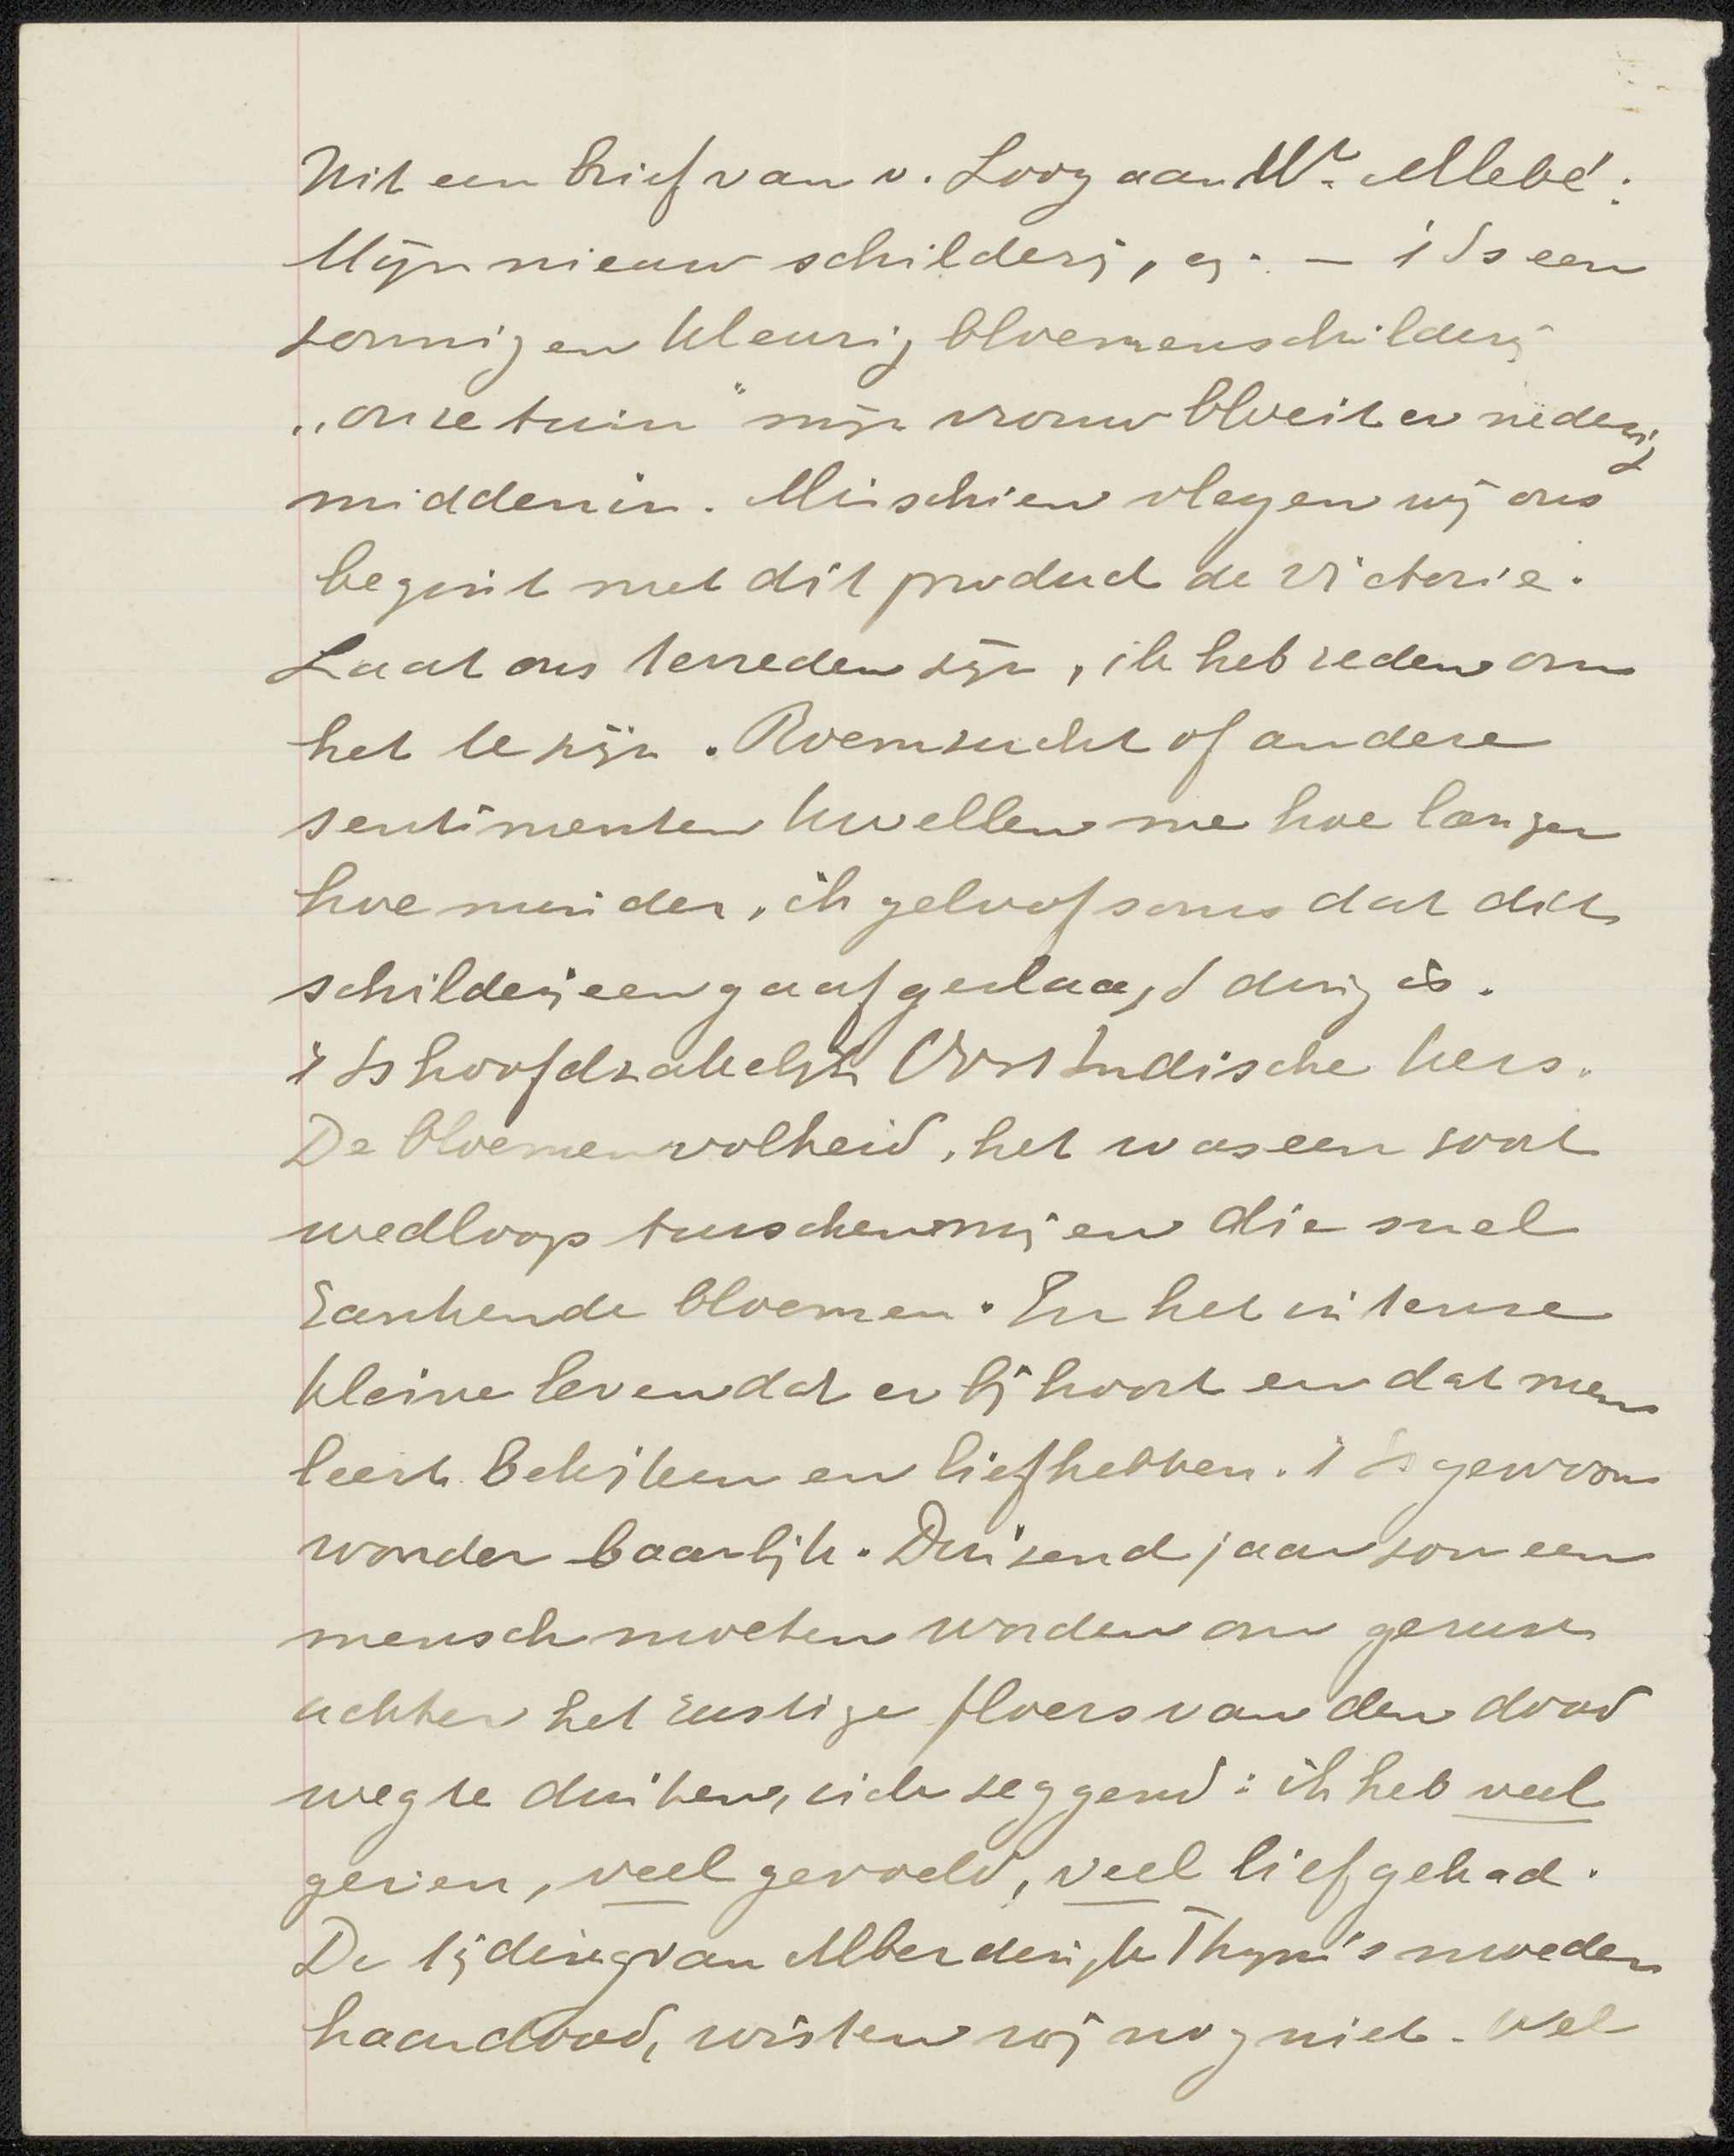 Uit een brief van v. Looy aan Wr. Allebé:
Mijn nieuw schilderij, — 't Is een
zonnig en kleurig bloemenschilderij
„onze tuin" mijn vrouw bloeit er nederig
middenin. Misschien vlagen wij ons
begint met dit product de victorie.
Laat ons tevreden zijn, ik heb reden om
het te zijn. Roemzucht of andere
sentimenten kwellen me hoe langer
hoe minder, ik geloof soms dat dit
schilderij een gaaf geslaagd ding is.
't Is hoofdzakelijk Oost Indische kers.
De bloemenvolheid, het was een soort
wedloop tusschen mij en die snel
rankende bloemen. En het intense
kleine leven dat er bij hoort en dat men
leert bekijken en liefhebben. 't Is gewoon
wonderbaarlijk. Duizend jaar zou een
mensch moeten worden om gerust
achter het rustige floers van den dood
weg te duiken, zich zeggend: ik heb veel
gezien, veel gevoeld, veel liefgehad.
De tijding van Alberdingk Thym's moeder
haar dood, wisten wij nog niet. Wel